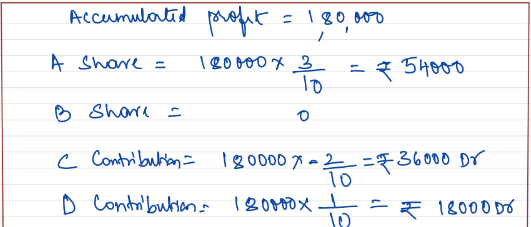 Accumulated profit = 1,80,000
A Share = 180000 x 3/10 = ₹ 54000
B Share = 0
C Contribution = 180000 x - 2/10 = ₹ 36000 Dr
D Contribution = 180000 x 1/10 = ₹ 18000 Dr